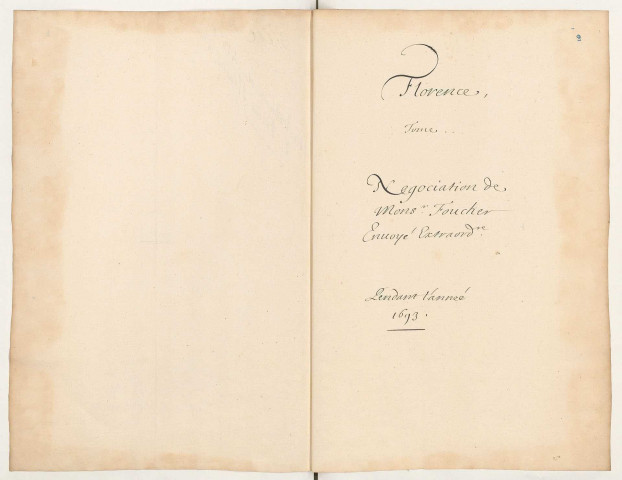 Florence.
Tome...
Negociation de
Mons.r Foucher
Envoyé Extraord.re
Pendant l'anneé
1693.